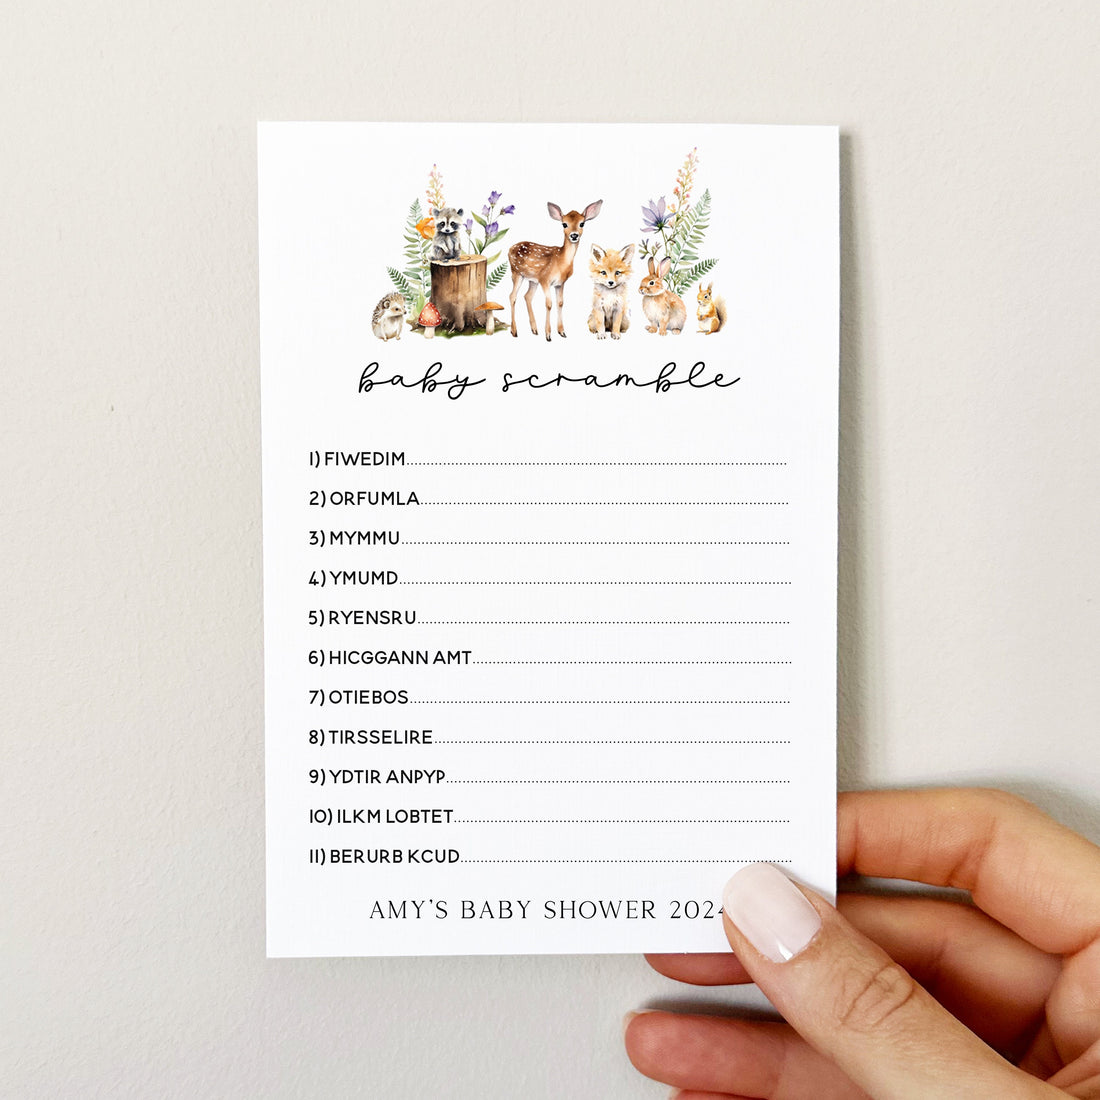 baby scramble
1) FIWEDIM
2) ORFUMLA
3) MYMMU
4) YMUMD
5) RYENSRU
6) HICGGANN AMT
7) OTIEBOS
8) TIRSSELIRE
9) YDTIR ANPYP
10) ILKM LOBTET
11) BERURB KCUD
AMY'S BABY SHOWER 2024